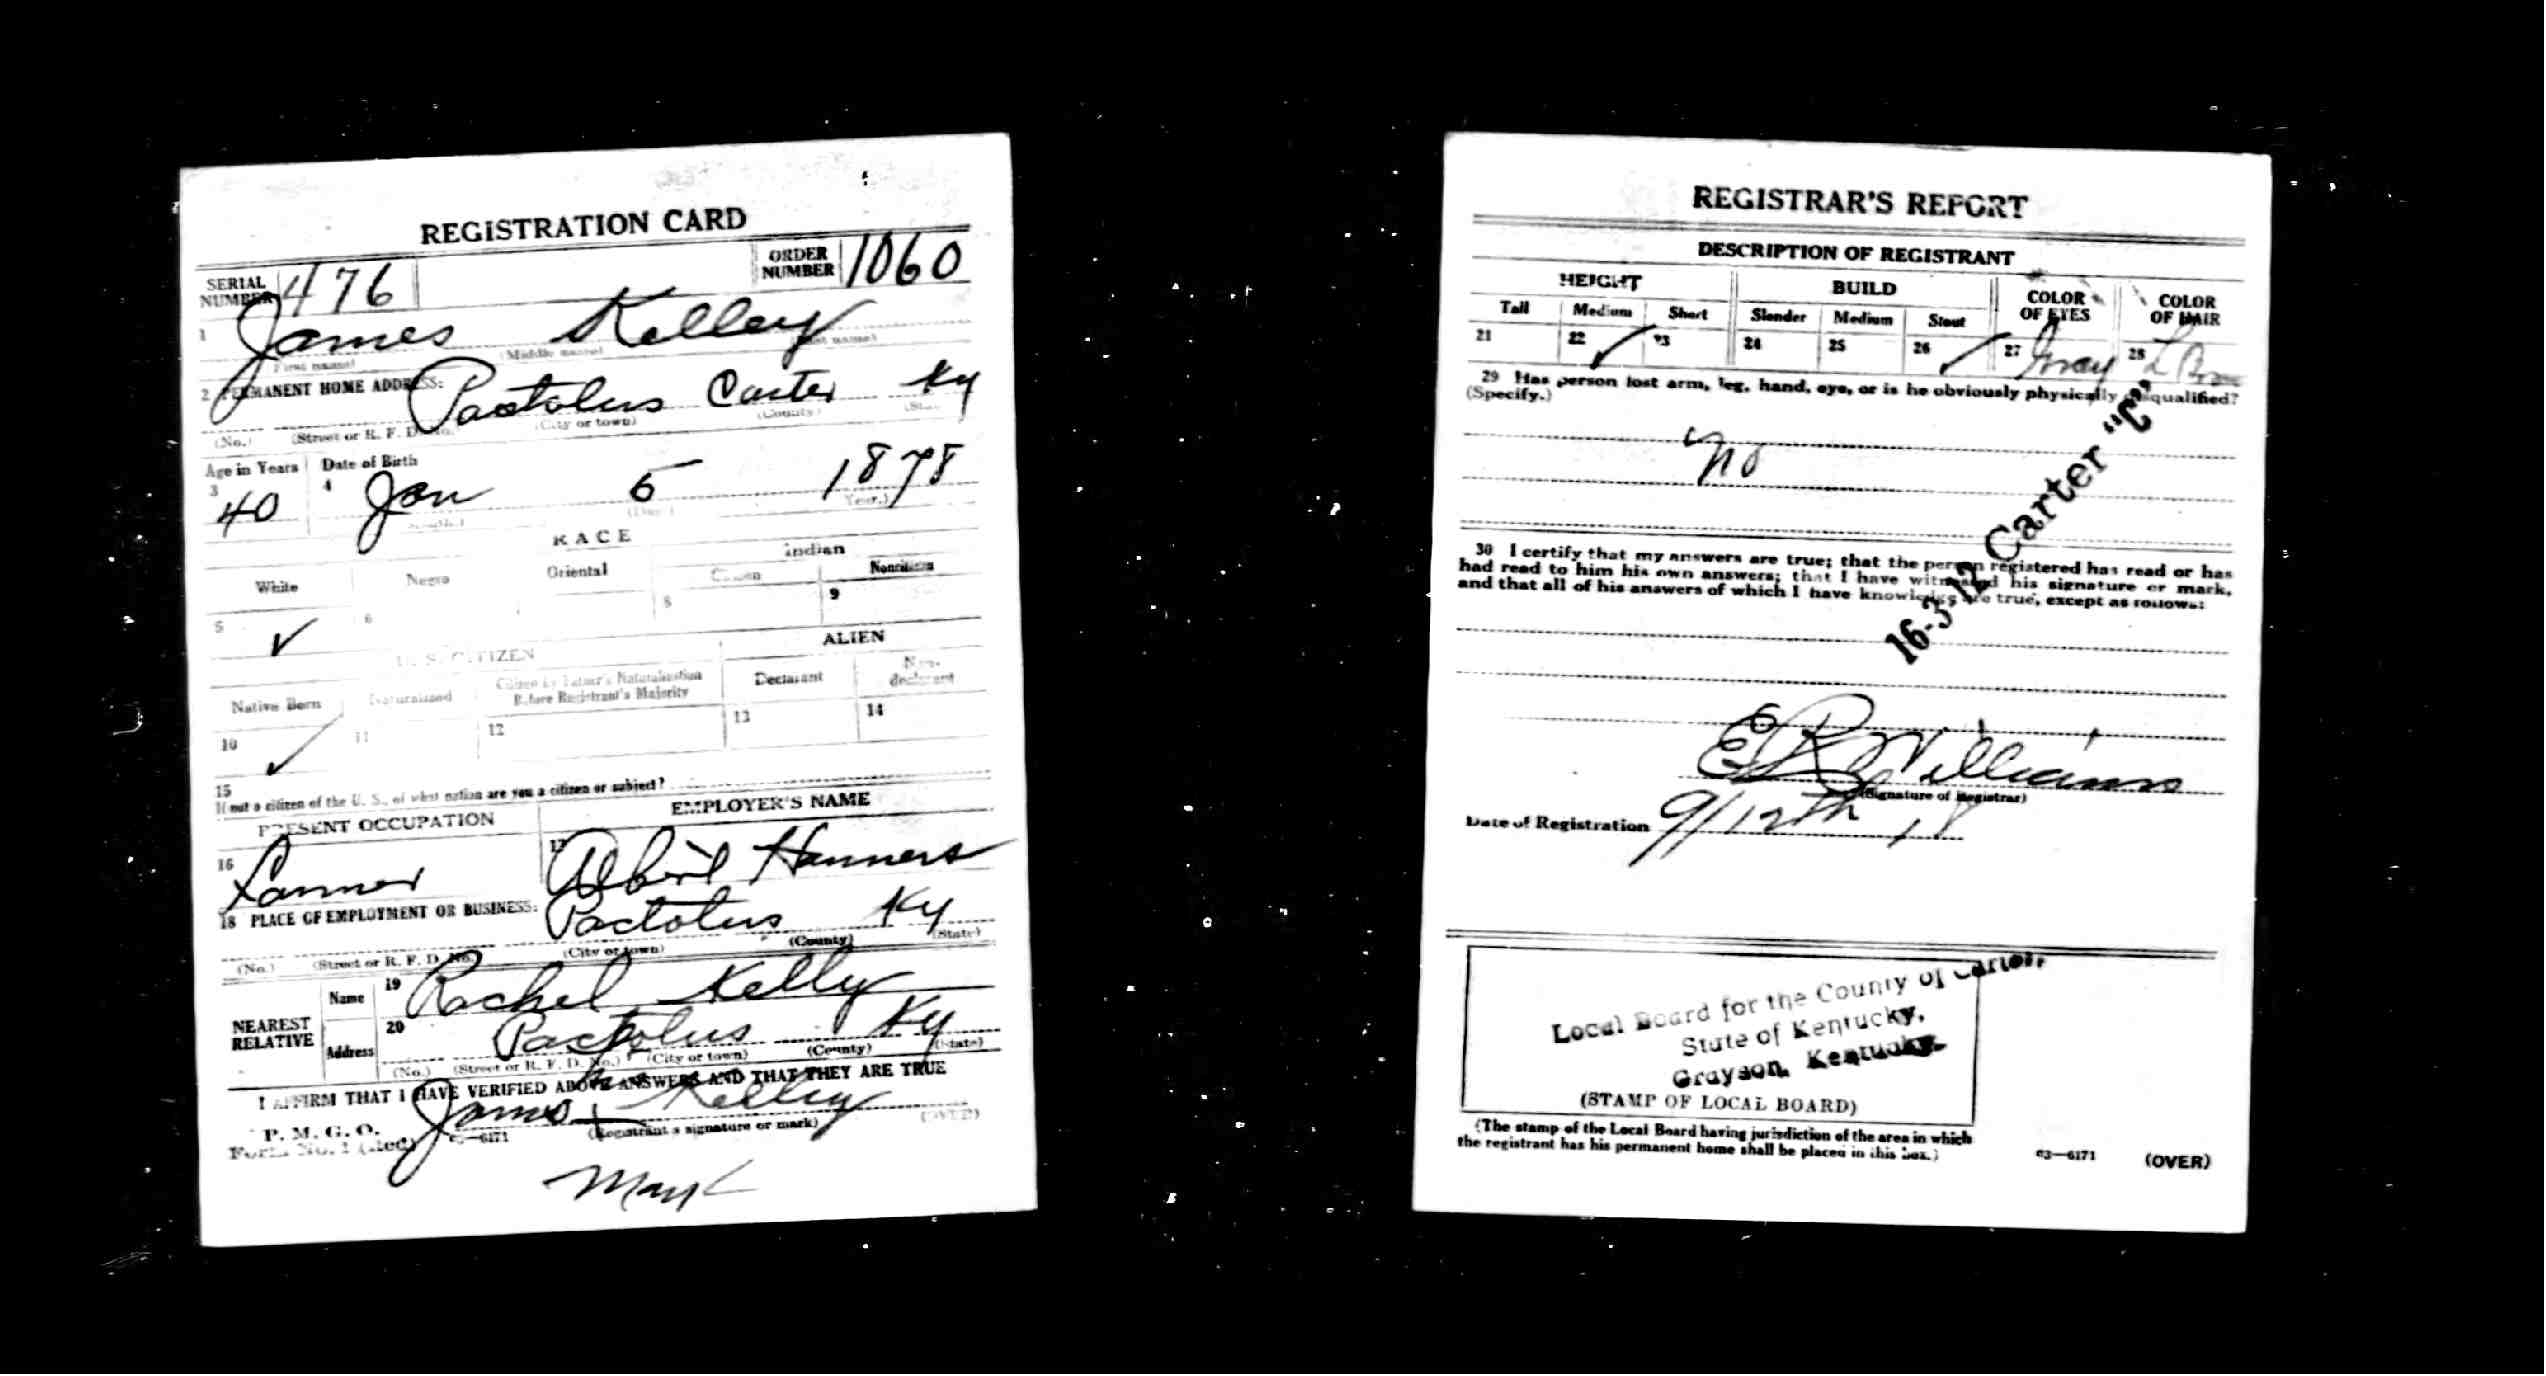 REGISTRATION CARD
SERIAL NUMBER 476 ORDER NUMBER 1060
1 James Kelley
(First name) (Middle name) (Last name)
2 PERMANENT HOME ADDRESS:
Pactolus Carter Ky
(No.) (Street or R. F. D. No.) (City or town) (County) (State)
Age in Years Date of Birth
3 40 4 Jan 5 1878
(Month.) (Day.) (Year.)
RACE
White Negro Oriental Indian
Citizen Noncitizen
5 ✓ 6 8 9
U. S. CITIZEN ALIEN
Native Born Naturalized Citizen by Father's Naturalization Before Registrant's Majority Declarant Non-declarant
10 ✓ 11 12 13 14
15
If not a citizen of the U. S., of what nation are you a citizen or subject?
PRESENT OCCUPATION EMPLOYER'S NAME
16 Farmer 17 Albert Hanners
18 PLACE OF EMPLOYMENT OR BUSINESS:
Pactolus Ky
(No.) (Street or R. F. D. No.) (City or town) (County) (State)
NEAREST RELATIVE Name 19 Rachel Kelly
Address 20 Pactolus Ky
(No.) (Street or R. F. D. No.) (City or town) (County) (State)
I AFFIRM THAT I HAVE VERIFIED ABOVE ANSWERS AND THAT THEY ARE TRUE
P. M. G. O.
Form No. 1 (Red) 03—6171
James Kelley
(Registrant's signature or mark) (OVER)
Mark
REGISTRAR'S REPORT
DESCRIPTION OF REGISTRANT
HEIGHT BUILD COLOR OF EYES COLOR OF HAIR
Tall Medium Short Slender Medium Stout
21 22 ✓ 23 24 25 26 ✓ 27 Gray 28
29 Has person lost arm, leg, hand, eye, or is he obviously physically disqualified?
(Specify.)
No
30 I certify that my answers are true; that the person registered has read or has
had read to him his own answers; that I have witnessed his signature or mark,
and that all of his answers of which I have knowledge are true, except as follows:
16-3-12 Carter "C"
E R Williams
(Signature of Registrar)
Date of Registration 9/12th, 18
Local Board for the County of Carter,
State of Kentucky,
Grayson, Kentucky.
(STAMP OF LOCAL BOARD)
(The stamp of the Local Board having jurisdiction of the area in which
the registrant has his permanent home shall be placed in this box.)
03—6171 (OVER)